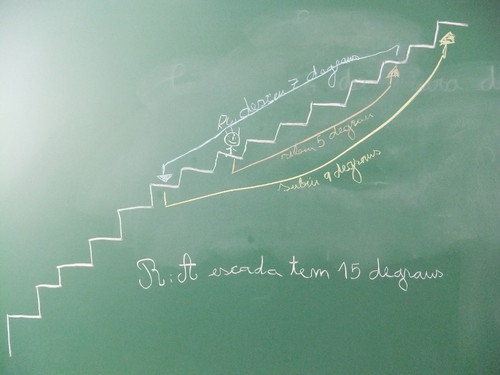 desceu 7 degraus
subiu 5 degraus
subiu 9 degraus
R: A escada tem 15 degraus.